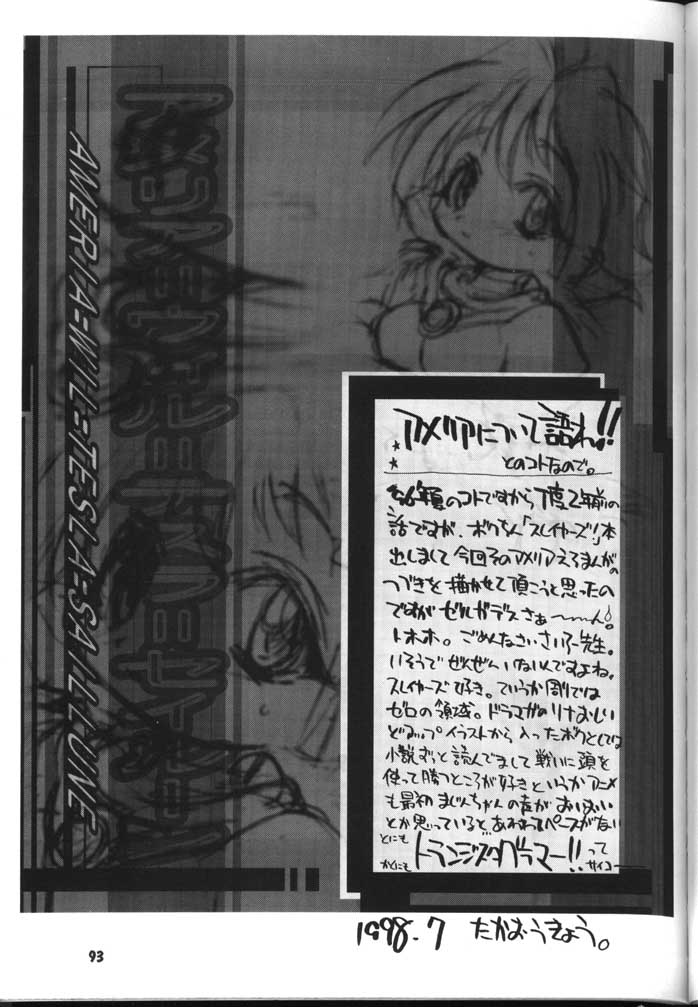 AMERIA=WIL=TESLA=SAILLUNE
アメリア=ウィル=テスラ=セイルーン
アメリアについて語れ!!
とのコトなので。
'96年夏のコトですから丁度2年前の
話ですが、ボクちん「スレイヤーズ!」本
出しまして今回そのアメリアえろまんがの
つづきを描かせて頂こうと思ったの
ですがゼルガデスさぁ〜〜ん!
トホホ。ごめんなさい 先生。
いそうでぜんぜんいないんですよね、
スレイヤーズ好き。ていうか周りでは
ゼロの領域。ドラマガのりナおいし
どあっぷイラストから入ったボクとしては
小説ずっと読んでまして戦いに頭を
使って勝つところが好きというかアニメ
も最初 まじんちゃんの声が
とか思っていると、あわわ ペースがない
とにも
かくにも
トランジスタグラマー!!って
サイコー
1998.7 たかおうきょう。
93